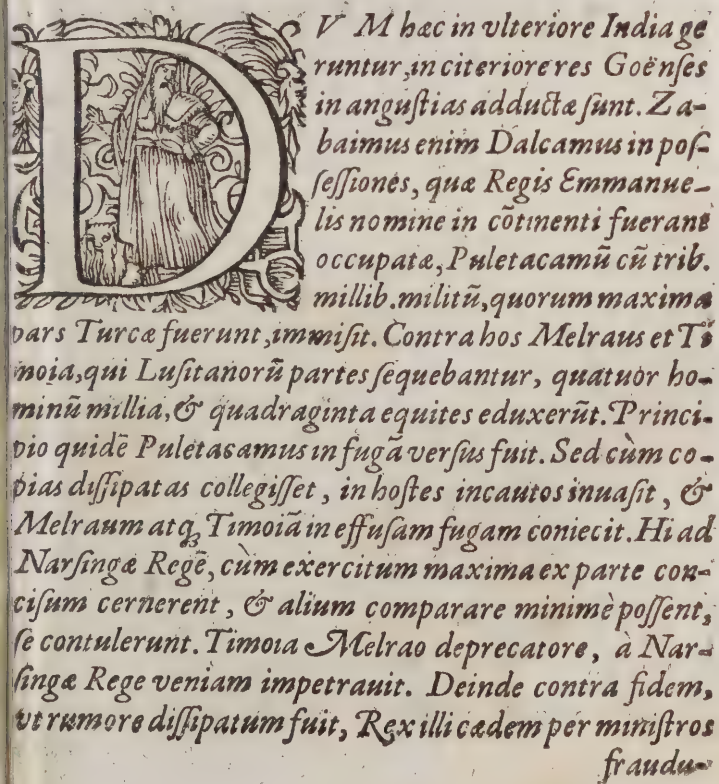 DV M hæc in vlteriore India ge
runtur, in citeriore res Goënſes
in anguſtias adductæ ſunt. Za-
baimus enim Dalcamus in poſ-
ſeſſiones, quæ Regis Emmanue-
lis nomine in cõtinenti fuerant
occupatæ, Puletacamũ cũ trib.
millib. militũ, quorum maxima
pars Turcæ fuerunt, immiſit. Contra hos Melraus et Ti
moia, qui Luſitanorũ partes ſequebantur, quatuor ho-
minũ millia, & quadraginta equites eduxerũt. Princi-
pio quidẽ Puletacamus in fugã verſus fuit. Sed cùm co-
pias diſſipatas collegiſſet, in hoſtes incautos inuaſit, &
Melraum atq; Timoiã in effuſam fugam coniecit. Hi ad
Narſingæ Regẽ, cùm exercitum maxima ex parte con-
ciſum cernerent, & alium comparare minimè poſſent,
ſe contulerunt. Timoia Melrao deprecatore, à Nar-
ſingæ Rege veniam impetrauit. Deinde contra fidem,
vt rumore diſſipatum fuit, Rex illi cædem per miniſtros
fraudu-